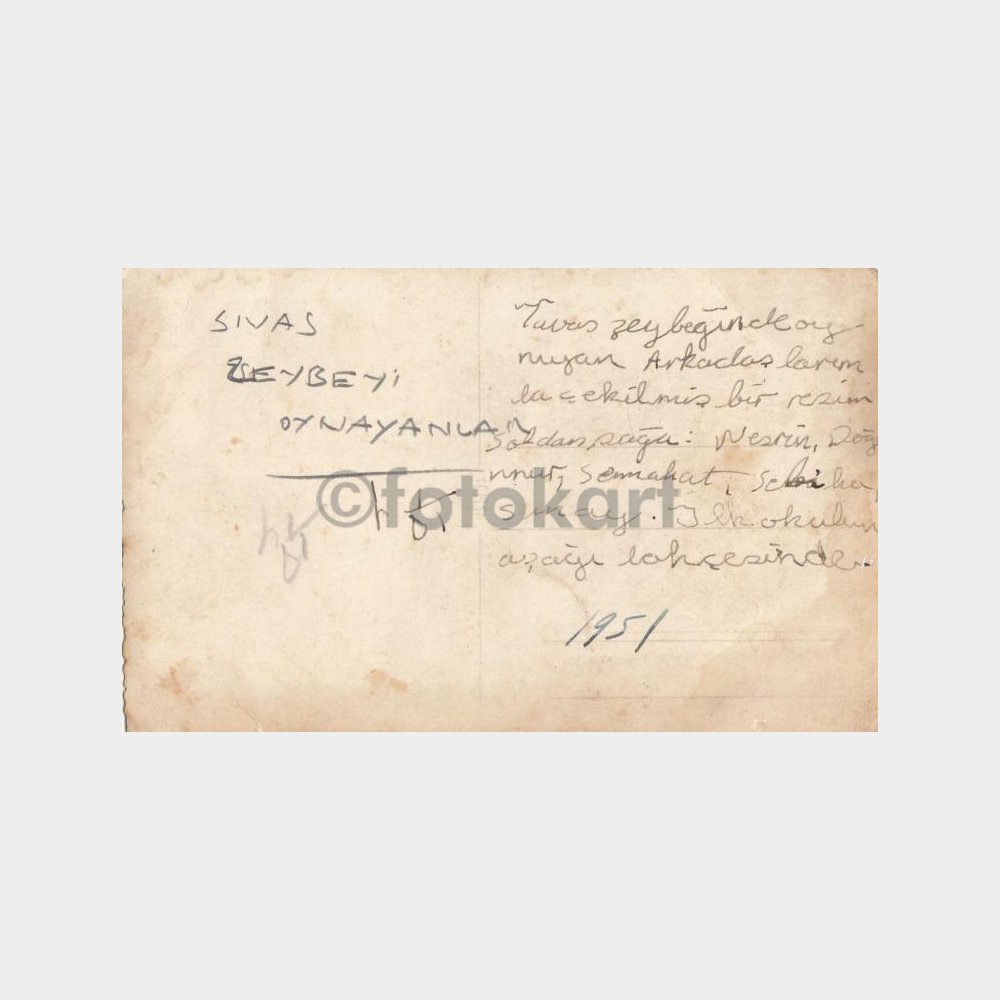 SIVAS
ZEYBEYİ
OYNAYANLAR
Tavas zeybeğinde oy
nuyan Arkadaşlarım
la çekilmiş bir resim
Soldan sağa: Nesrin, Doğ
nnur, Semahat, Sebiha
İlk okulun
aşağı bahçesinde.
1951
©fotokart